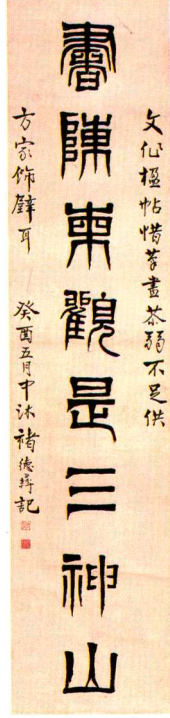 文楹帖惜筆畫苶弱不足供
書陳東觀是三神山
方家飾壁耳 癸酉五月中沐褚德彝記